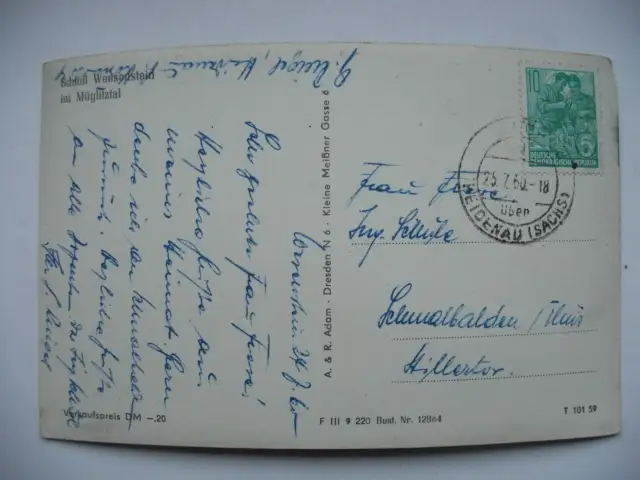 Schloß Weesenstein
im Müglitztal
Weesenstein 24.7.60
Sehr geehrte Frau Fiore!
Herzliche Grüße aus
meiner Heimat. Gern
denke ich an Schmalkalden
zurück. Herzliche Grüße
an alle
Verkaufspreis DM –.20
A. & R. Adam - Dresden N 6 - Kleine Meißner Gasse 6
F III 9 220 Best. Nr. 12864
T 101 59
10
DEUTSCHE
DEMOKRATISCHE REPUBLIK
25.7.60.-18
über
HEIDENAU (SACHS)
Frau Fiore
Ing. Schule
Schmalkalden / Thür
Stillertor.